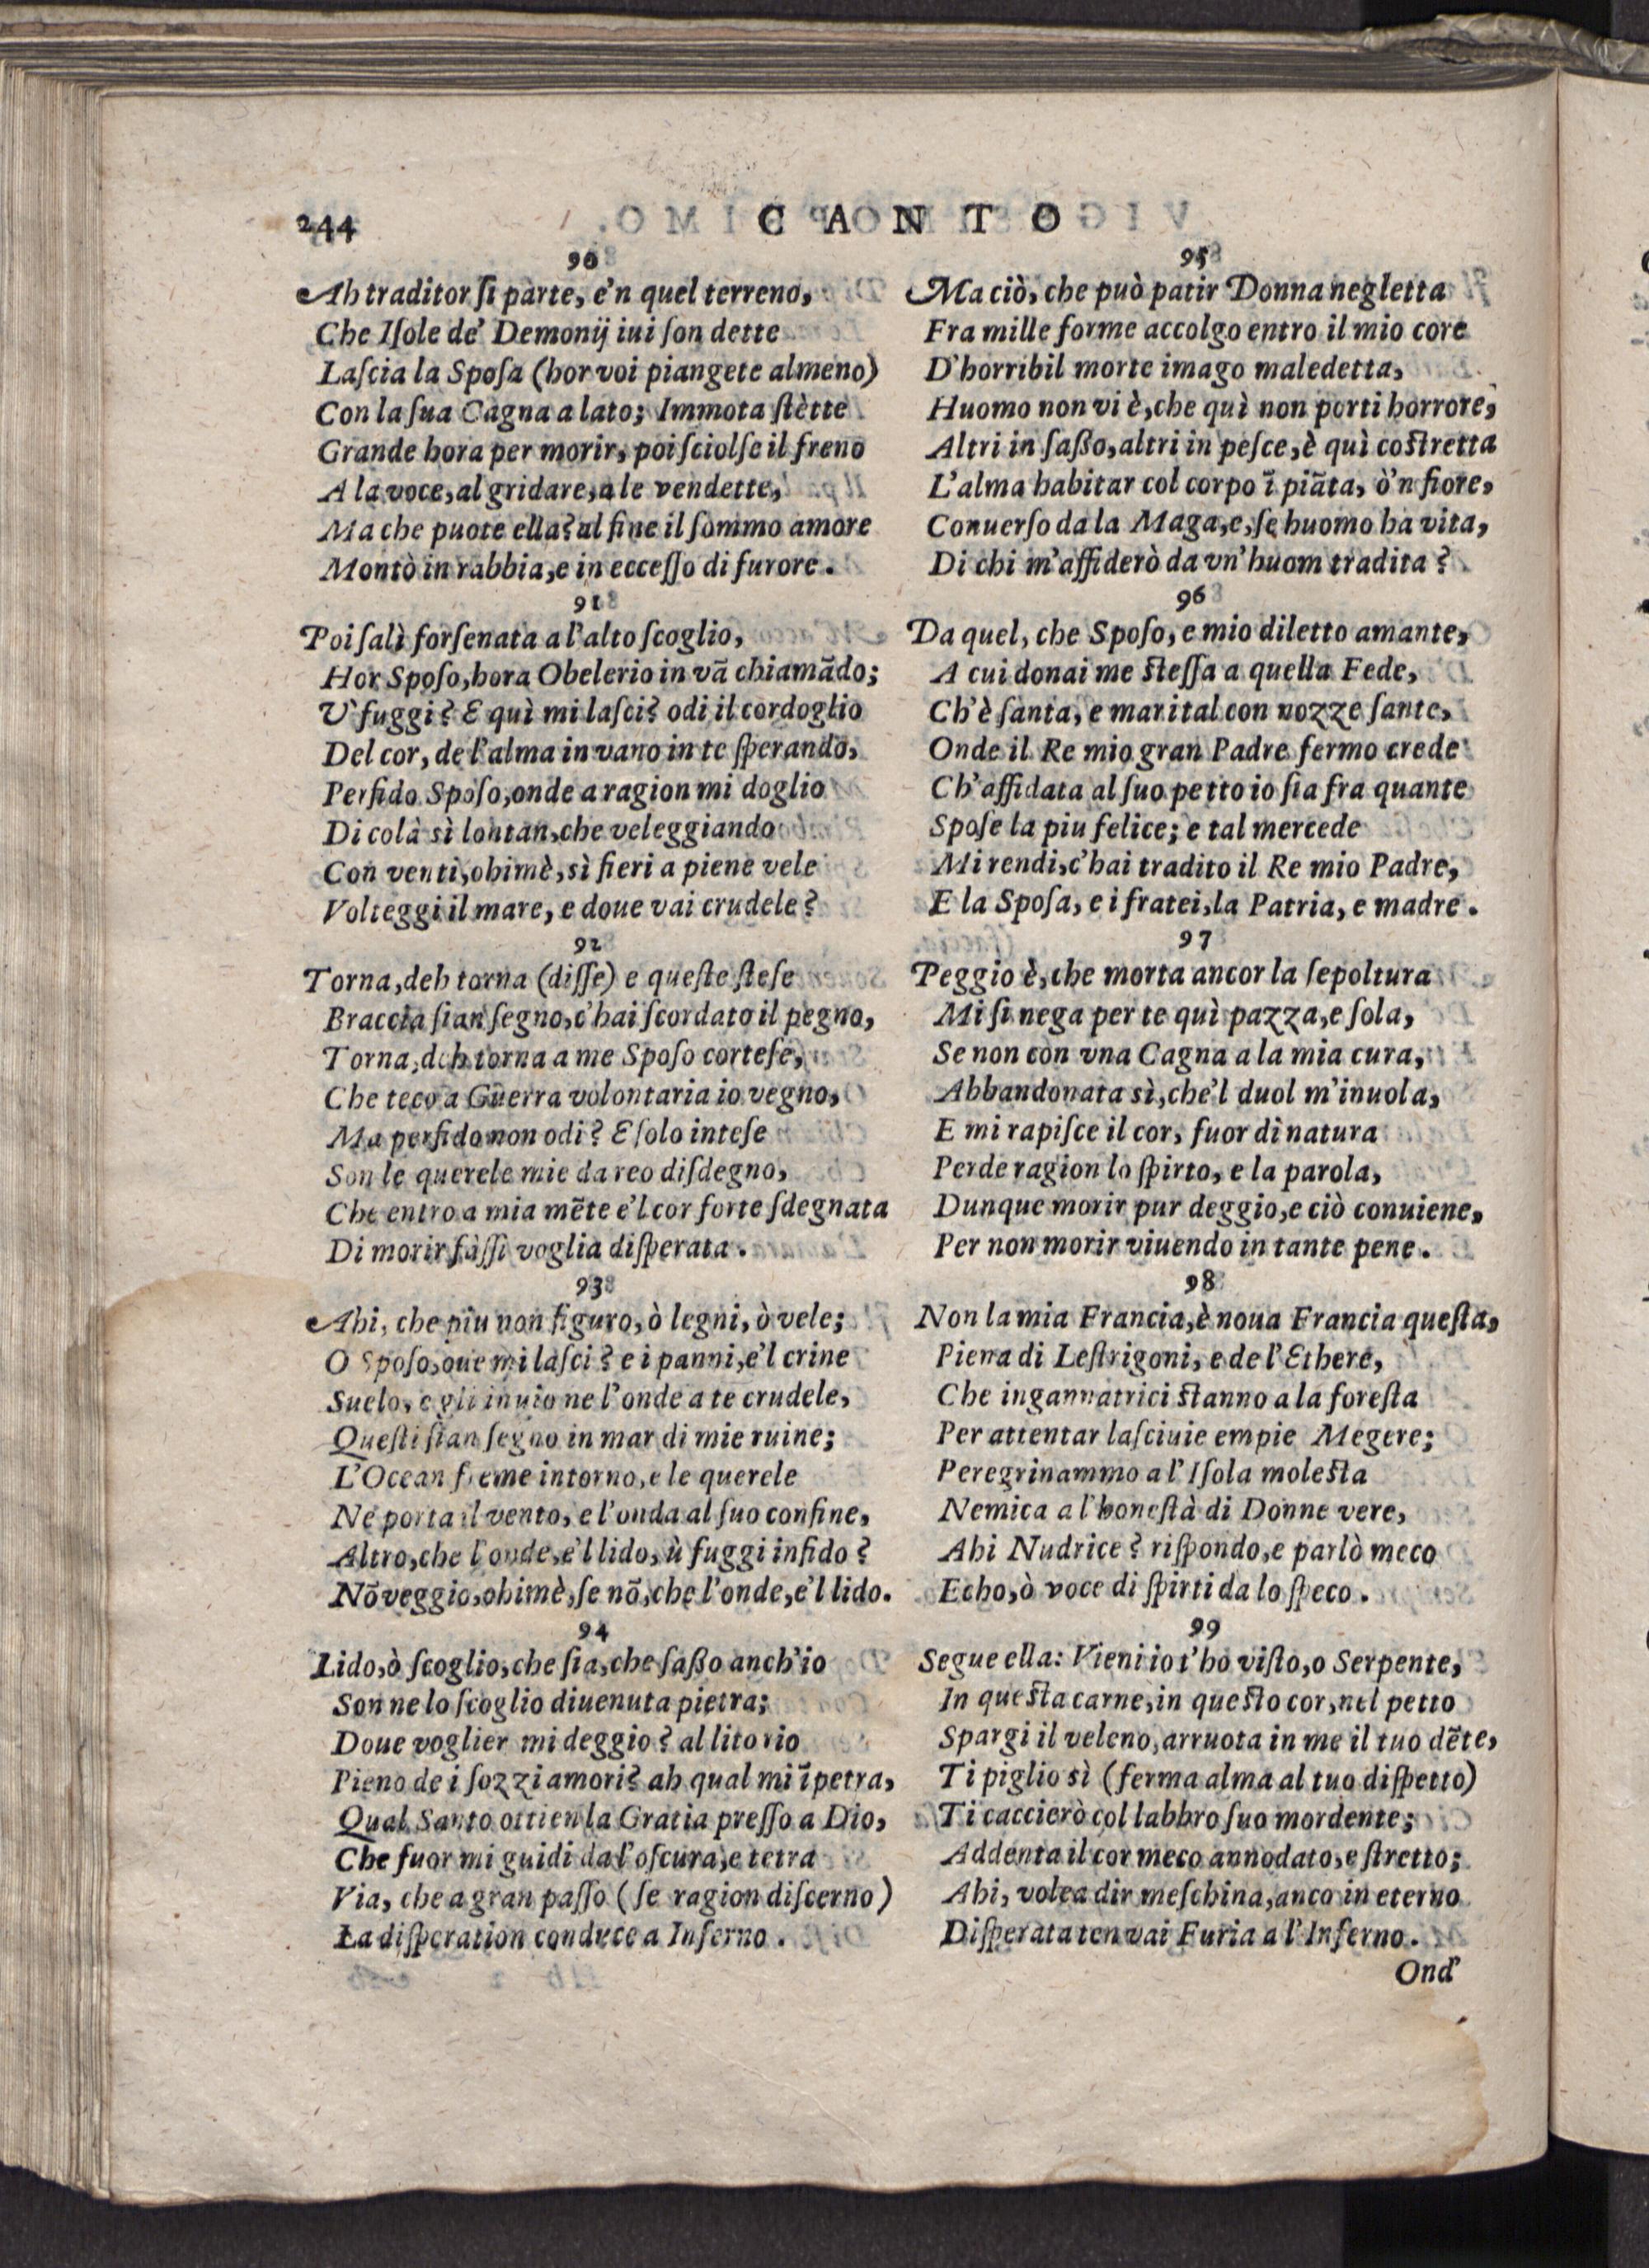 244
CANTO
90
Ah traditor ſi parte, e'n quel terreno,
Che Iſole de' Demonij iui ſon dette
Laſcia la Spoſa (hor voi piangete almeno)
Con la ſua Cagna a lato; Immota ſtètte
Grande hora per morir, poi ſciolſe il freno
A la voce, al gridare, a le vendette,
Ma che puote ella? al fine il ſommo amore
Montò in rabbia, e in ecceſſo di furore.
91
Poi ſalì forſenata a l'alto ſcoglio,
Hor Spoſo, hora Obelerio in vã chiamãdo;
V' fuggi? E quì mi laſci? odi il cordoglio
Del cor, de l'alma in vano in te ſperando,
Perfido Spoſo, onde a ragion mi doglio
Di colà sì lontan, che veleggiando
Con venti, ohimè, sì fieri a piene vele
Volteggi il mare, e doue vai crudele?
92
Torna, deh torna (diſſe) e queſte ſteſe
Braccia ſian ſegno, c'hai ſcordato il pegno,
Torna, deh torna a me Spoſo corteſe,
Che teco a Guerra volontaria io vegno,
Ma perfido non odi? E ſolo inteſe
Son le querele mie da reo diſdegno,
Che entro a mia mẽte e'l cor forte ſdegnata
Di morir fàſſi voglia diſperata.
93
Ahi, che piu non figuro, ò legni, ò vele;
O Spoſo, oue mi laſci? e i panni, e'l crine
Suelo, e gli inuio ne l'onde a te crudele,
Queſti ſian ſegno in mar di mie ruine;
L'Ocean freme intorno, e le querele
Ne porta il vento, e l'onda al ſuo confine,
Altro, che l'onde, e'l lido, ù fuggi infido?
Nõ veggio, ohimè, ſe nõ, che l'onde, e'l lido.
94
Lido, ò ſcoglio, che ſia, che ſaßo anch'io
Son ne lo ſcoglio diuenuta pietra;
Doue voglier mi deggio? al lito rio
Pieno de i ſozzi amori? ah qual mi ĩpetra,
Qual Santo ottien la Gratia preſſo a Dio,
Che fuor mi guidi da l'oſcura, e tetra
Via, che a gran paſſo (ſe ragion diſcerno)
La diſperation conduce a Inferno.
95
Ma ciò, che può patir Donna negletta
Fra mille forme accolgo entro il mio core
D'horribil morte imago maledetta,
Huomo non vi è, che quì non porti horrore,
Altri in ſaßo, altri in peſce, è quì coſtretta
L'alma habitar col corpo ĩ piãta, ò'n fiore,
Conuerſo da la Maga, e, ſe huomo ha vita,
Di chi m'affiderò da vn'huom tradita?
96
Da quel, che Spoſo, e mio diletto amante,
A cui donai me ſteſſa a quella Fede,
Ch'è ſanta, e marital con nozze ſante,
Onde il Re mio gran Padre fermo crede
Ch'affidata al ſuo petto io ſia fra quante
Spoſe la piu felice; e tal mercede
Mi rendi, c'hai tradito il Re mio Padre,
E la Spoſa, e i fratei, la Patria, e madre.
97
Peggio è, che morta ancor la ſepoltura
Mi ſi nega per te quì pazza, e ſola,
Se non con vna Cagna a la mia cura,
Abbandonata sì, che'l duol m'inuola,
E mi rapiſce il cor, fuor di natura
Perde ragion lo ſpirto, e la parola,
Dunque morir pur deggio, e ciò conuiene,
Per non morir viuendo in tante pene.
98
Non la mia Francia, è noua Francia queſta,
Piena di Leſtrigoni, e de l'Ethere,
Che ingannatrici ſtanno a la foreſta
Per attentar laſciuie empie Megere;
Peregrinammo a l'Iſola moleſta
Nemica a l'honeſtà di Donne vere,
Ahi Nudrice? riſpondo, e parlò meco
Echo, ò voce di ſpirti da lo ſpeco.
99
Segue ella: Vieni io t'hò viſto, o Serpente,
In queſta carne, in queſto cor, nel petto
Spargi il veleno, arruota in me il tuo dẽte,
Ti piglio sì (ferma alma al tuo diſpetto)
Ti caccierò col labbro ſuo mordente;
Addenta il cor meco annodato, e ſtretto;
Ahi, volea dir meſchina, anco in eterno
Diſperata ten vai Furia a l'Inferno.
Ond'